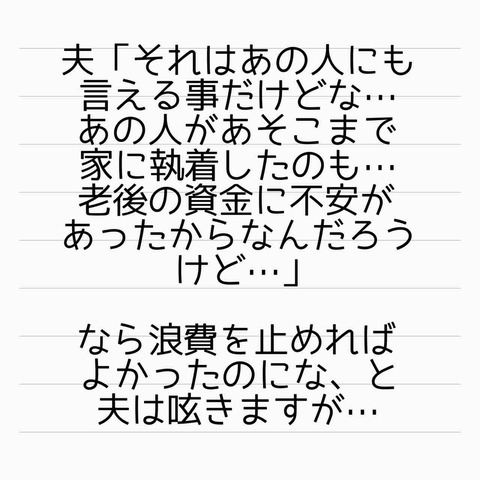 夫「それはあの人にも
言える事だけどな…
あの人があそこまで
家に執着したのも…
老後の資金に不安が
あったからなんだろう
けど…」
なら浪費を止めれば
よかったのにな、と
夫は呟きますが…